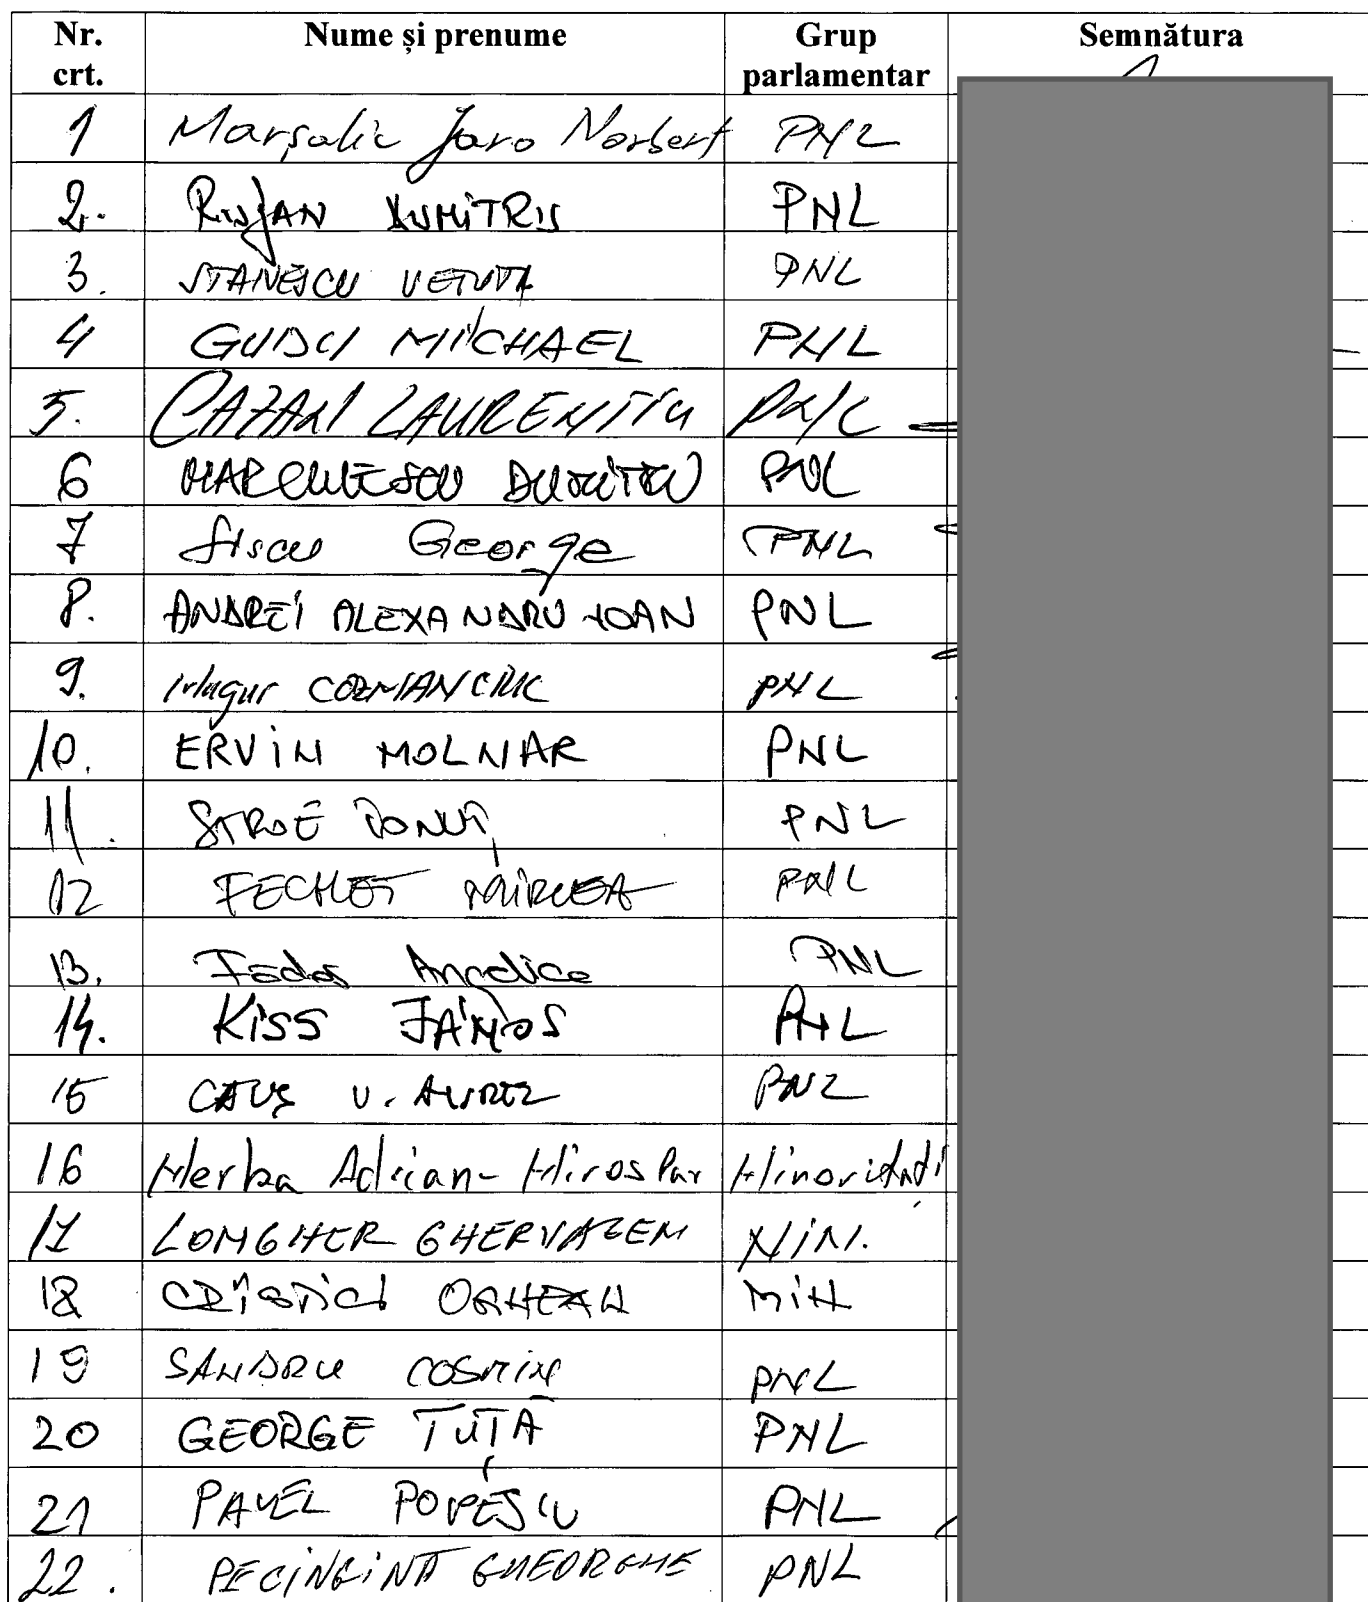 Nr. crt. Nume și prenume Grup parlamentar Semnătura
1 Marșalic Jaro Norbert PNL
2. Rujan DUMITRU PNL
3. STANESCU VETUTA PNL
4 GUDU MICHAEL PNL
5. CAZAN LAURENTIU PNL
6 MARCULESCU DUMITRU PNL
7 Sișcu George PNL
8. ANDREI ALEXANDRU IOAN PNL
9. Mugur COZMANCIUC PNL
10. ERVIN MOLNAR PNL
11. STROE IONUȚ PNL
12 FECHET MIRCEA PNL
13. Fădor Angelica PNL
14. KISS JÁNOS PNL
15 CAUȘ V. AUREL PNL
16 Merka Adrian-Miroslav Minorități
17 LONGHER GHERVAZEN MIN.
18 OGHEAN MIN
19 SANDRU COSMIN PNL
20 GEORGE TUȚĂ PNL
21 PAVEL POPESCU PNL
22. PECINGINĂ GHEORGHE PNL